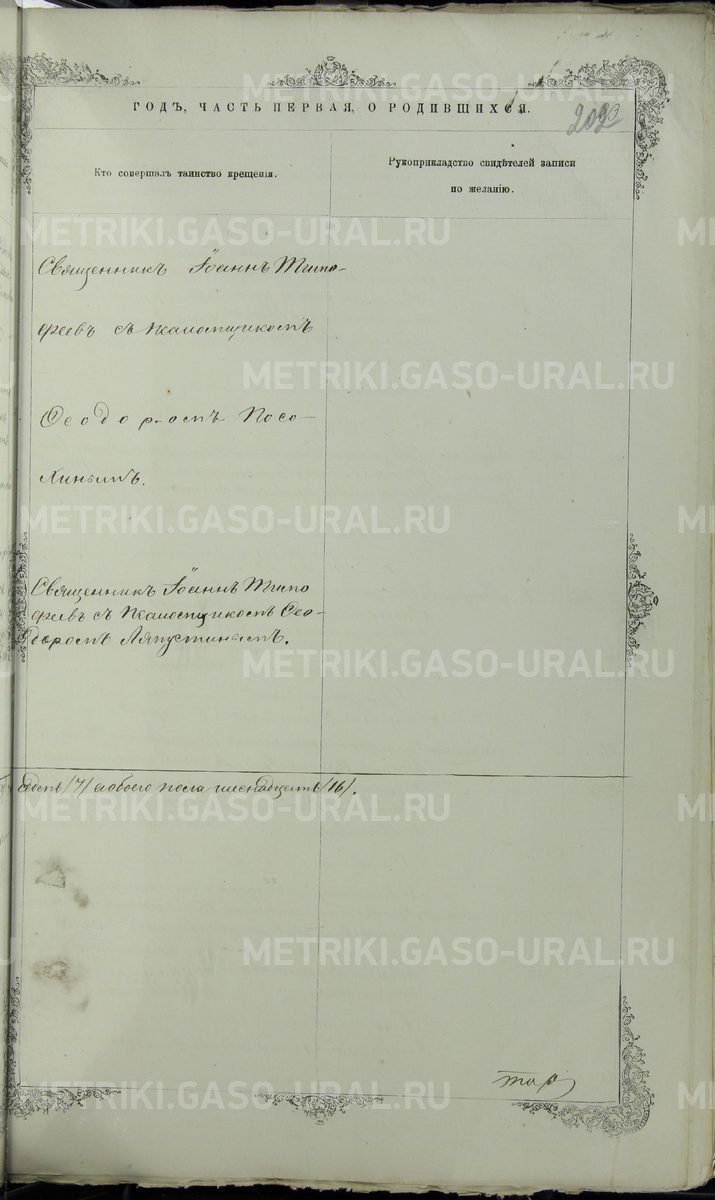 ГОДЪ, ЧАСТЬ ПЕРВАЯ, О РОДИВШИХСЯ.
Кто совершалъ таинство крещенія.
Рукоприкладство свидѣтелей записи
по желанію.
Священникъ Іоаннъ Тимо-
феевъ съ псаломщикомъ
Ѳеодоромъ Посо-
хинымъ.
Священникъ Іоаннъ Тимо
феевъ съ псаломщикомъ Ѳео-
доромъ Ляпустинымъ.
/7/ обоего пола шестнадцать /16/.
METRIKI.GASO-URAL.RU